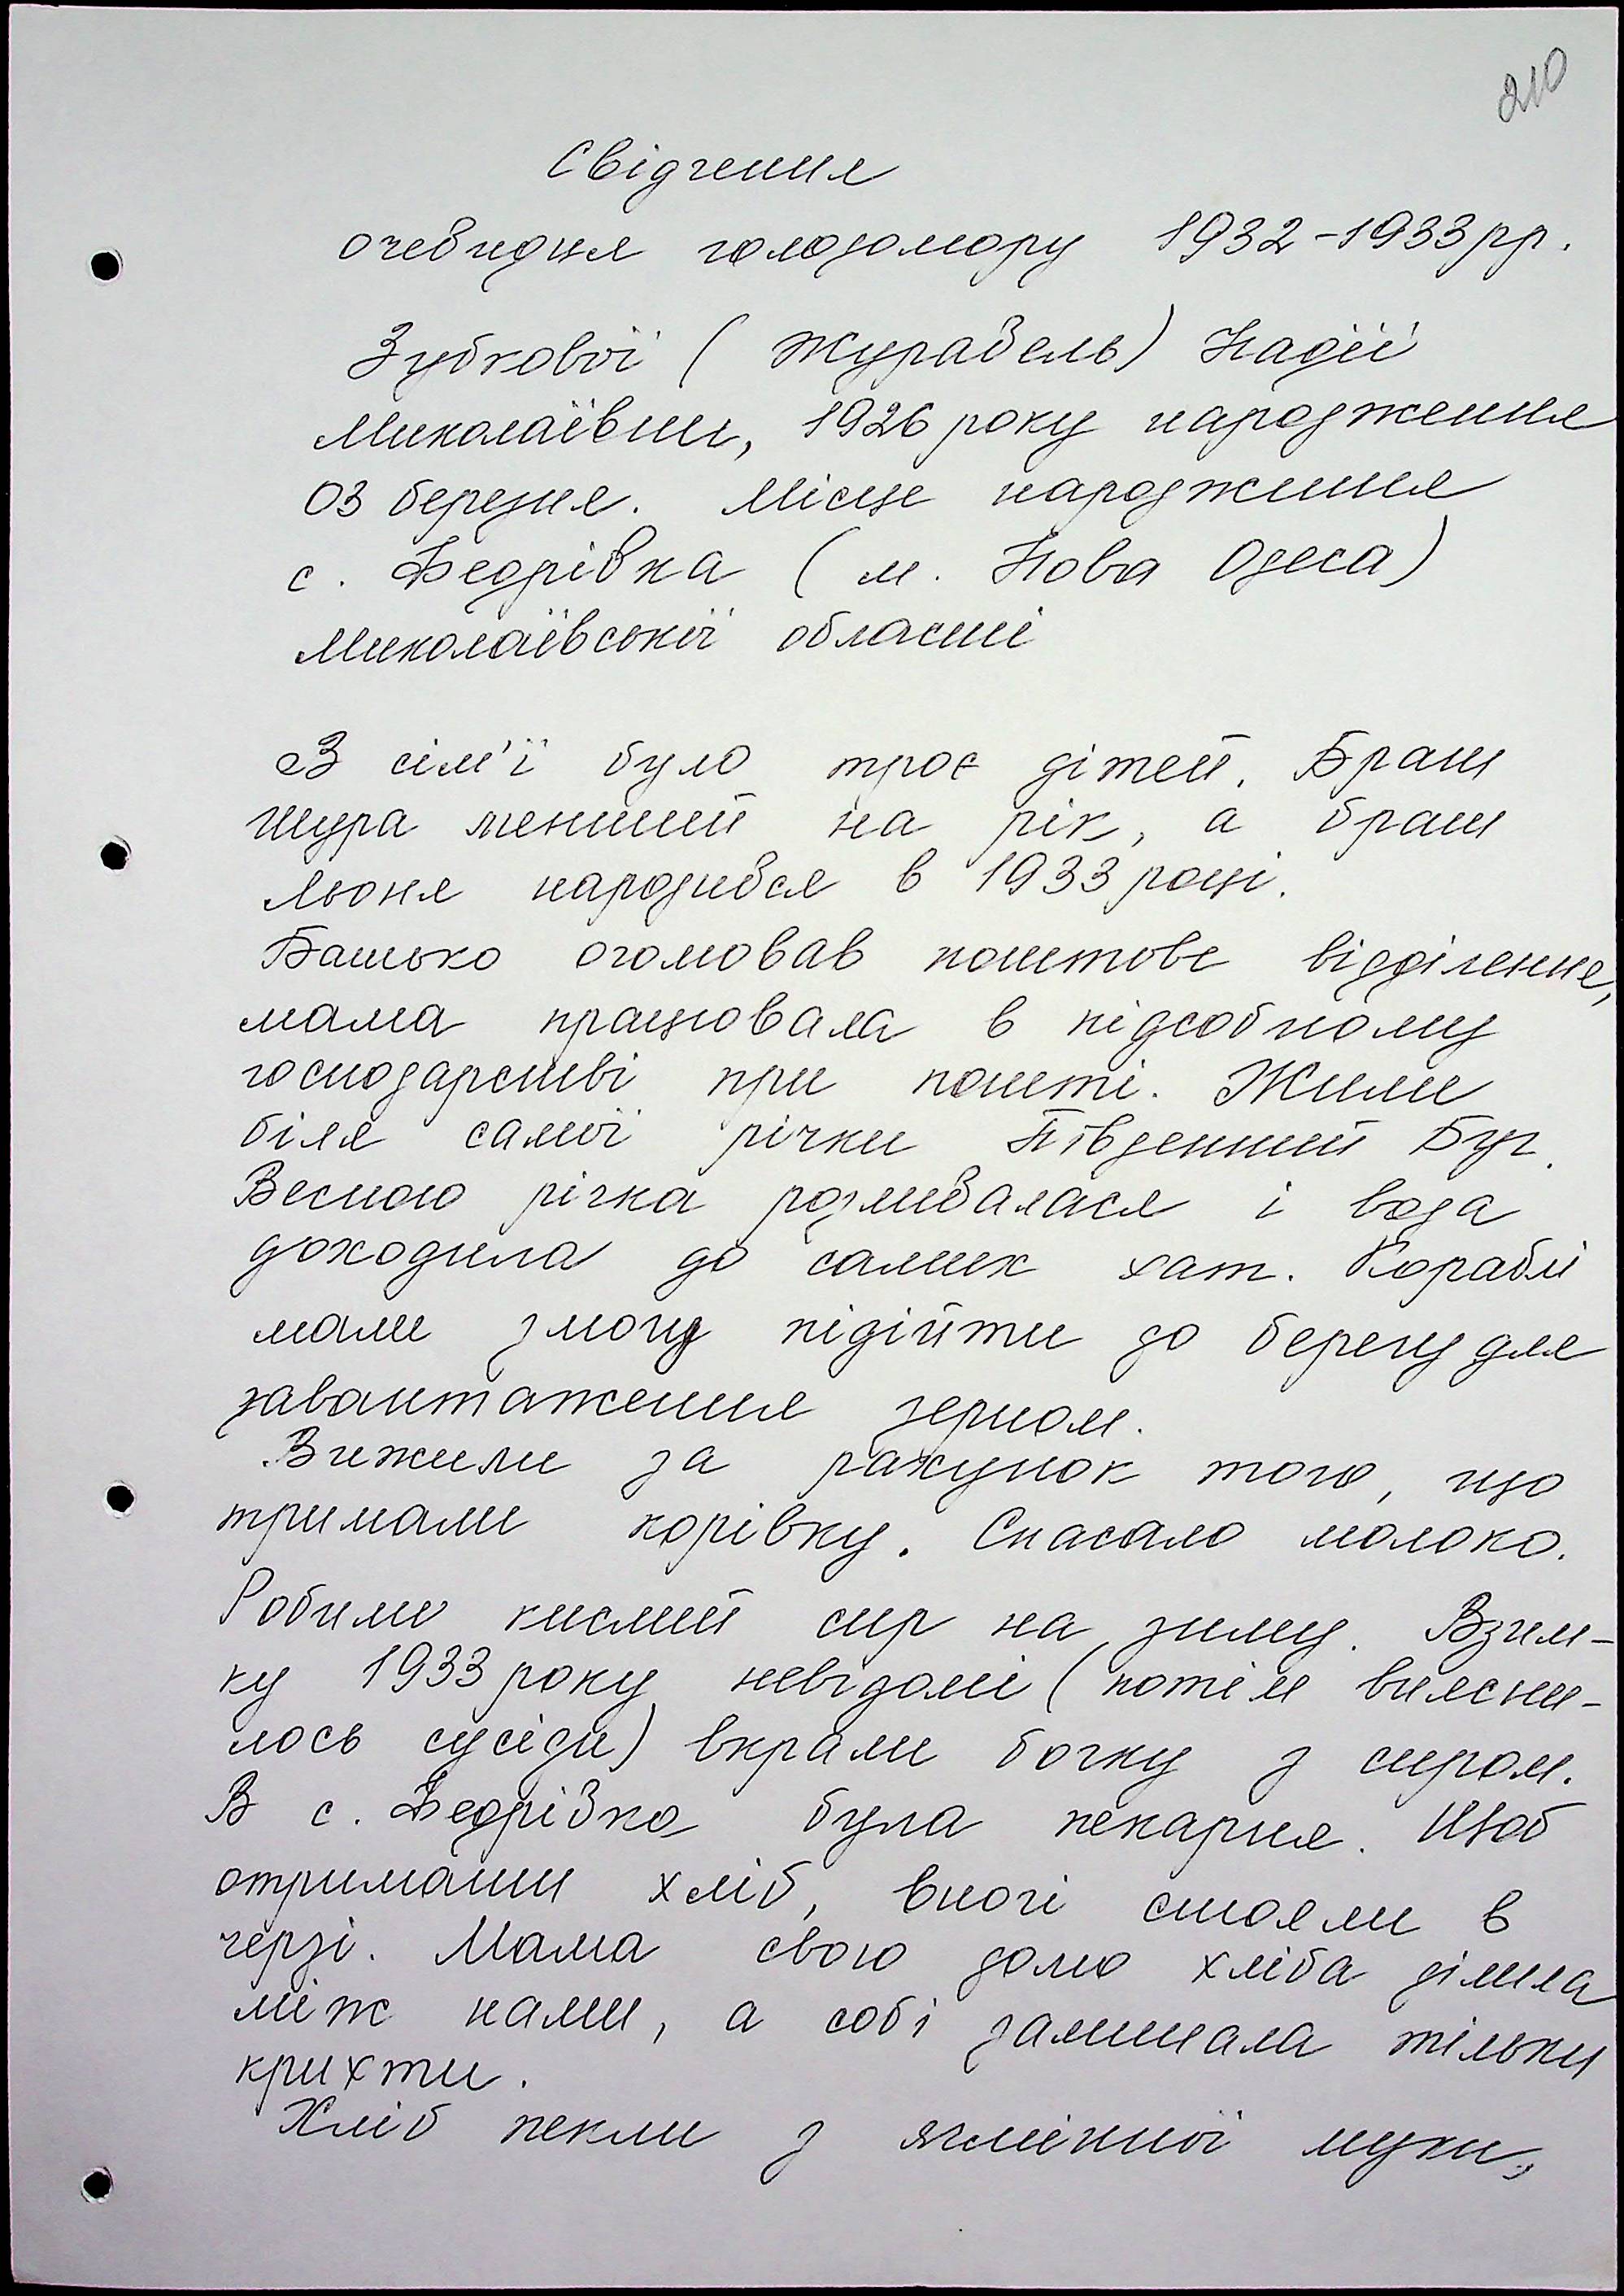 210
Свідчення
очевидця голодомору 1932-1933 рр.
Зубкової (Журавель) Надії
Миколаївни, 1926 року народження
03 березня. Місце народження
с. Федрівка (м. Нова Одеса)
Миколаївської області
З сім'ї було троє дітей. Брат
Шура менший на рік, а брат
Льоня народився в 1933 році.
Батько очолював поштове відділення,
мама працювала в підсобному
господарстві при пошті. Жили
біля самої річки Південний Буг.
Весною річка розливалася і вода
доходила до самих хат. Кораблі
мали змогу підійти до берегу для
завантаження зерном.
Вижили за рахунок того, що
тримали корівку. Спасало молоко.
Робили кислий сир на зиму. Взим-
ку 1933 року невідомі (потім виясни-
лось сусіди) вкрали бочку з сиром.
В с. Федрівка була пекарня. Щоб
отримати хліб, вночі стояли в
черзі. Мама свою долю хліба ділила
між нами, а собі залишала тільки
крихти.
Хліб пекли з ячмінної муки,